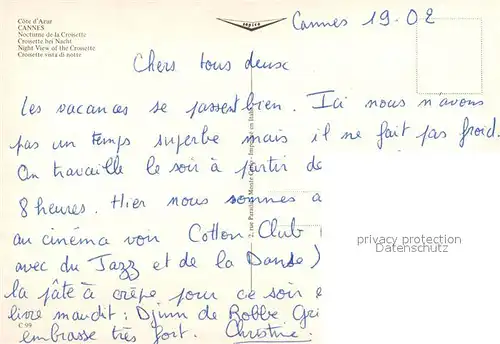 Côte d'Azur
CANNES
Nocturne de la Croisette
Croisette bei Nacht
Night View of the Crossette
Croisette vista di notte
Cannes 19.02
Chers tous deux
Les vacances se passent bien. Ici nous n'avons
pas un temps superbe mais il ne fait pas froid.
On travaille le soir à partir de
8 heures. Hier nous sommes a
au cinéma voir Cotton Club (
avec du Jazz et de la Danse)
la pâte à crêpe pour ce soir e
livre maudit : Djinn de Robbe Gri
embrasse très fort. Christine.
C 99
privacy protection
Datenschutz